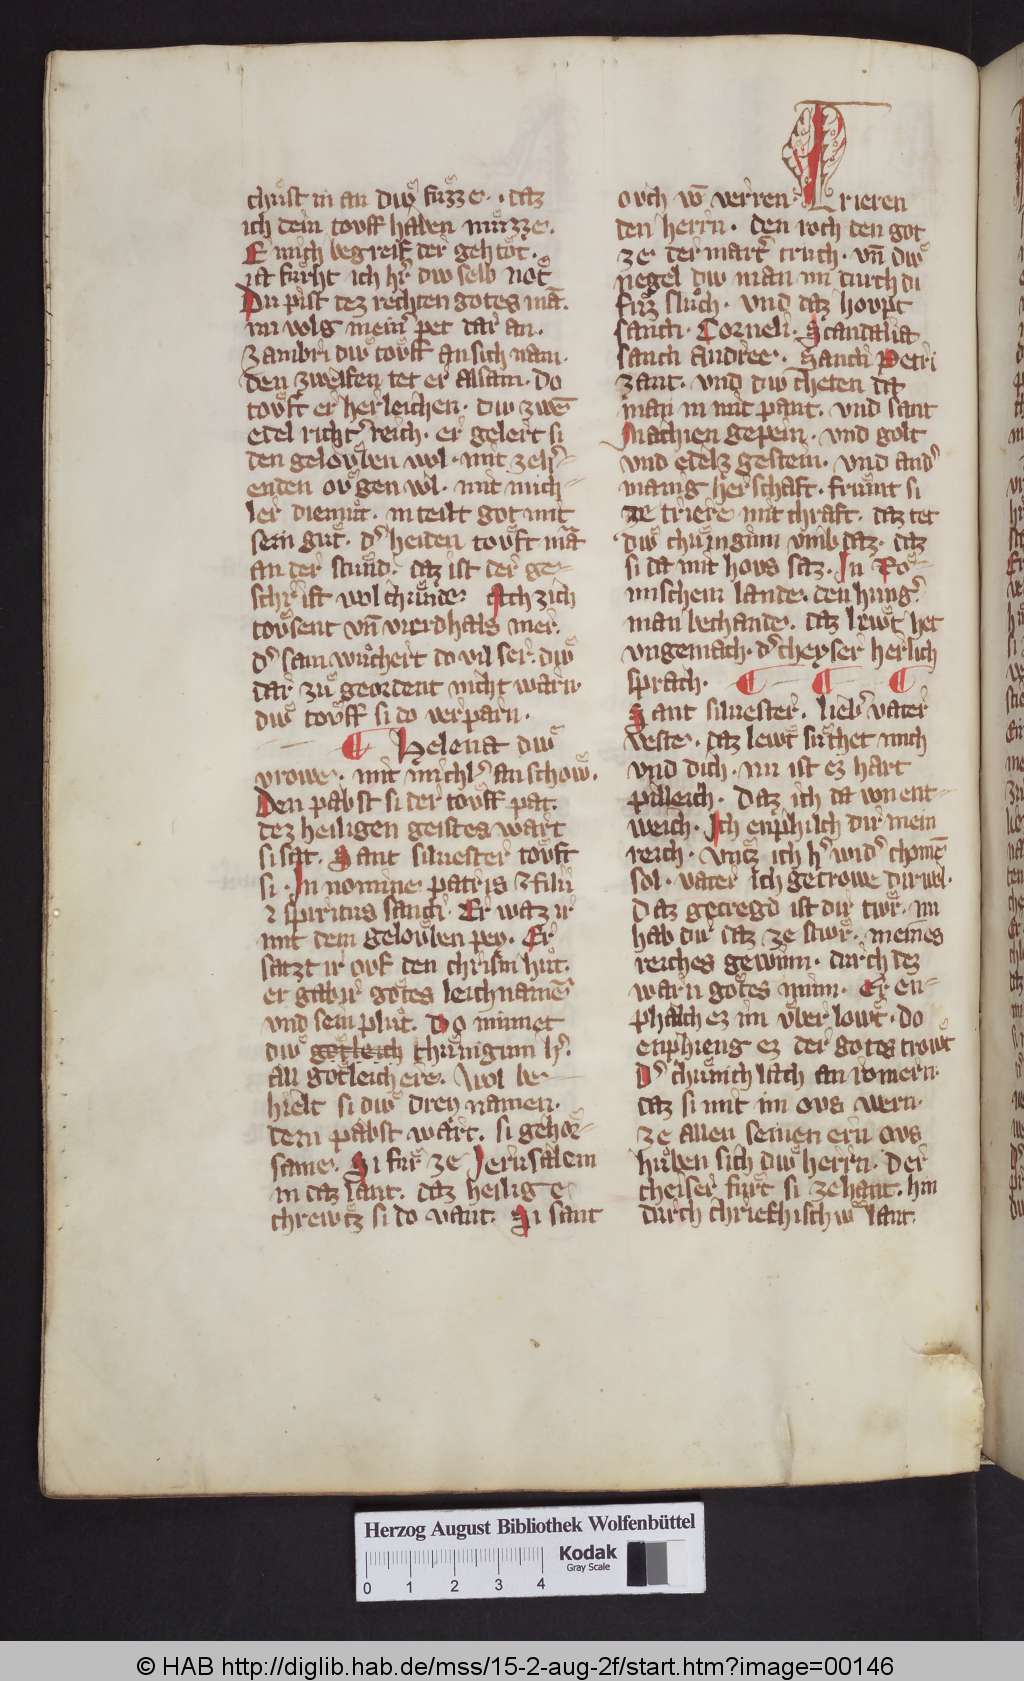 chust in an diw fuzze · daz
ich dein touff haben muͤzze.
E mich begreif der geh tot.
ia furht ich hr̄ diw selb not
Du pist dez rechten gotes mā.
nu volg mein̄ pet dar an.
zambri diw touff an sich nam.
den zwelfen tet er alsam. Do
touft er herleichen. diw zwē
edel richt̄ reich. er gelert si
den gelouben wol. mit zeh̄-
enden ougen wl. mit mich-
ler diemut. in teilt got mit
sein gut. d̄ heiden touft mā
an der stund. daz ist der ge-
schrift wol chunde. Ach zich
tousent vn̄ vierdhalb mer.
d̄ sam wuͦchert do vil ser. diw
dar zu geordent nicht warn
diw touff si do verparn.
¶ Helena diw
vrowe. mit michl̄ anschow.
Den pabst si der touff pat.
dez heiligen geistes wart
si sat. Sant siluester touft
si. In nomine patris ⁊ filii
⁊ spiritus sancti. Er waz ir
mit dem gelouben pey. Er
satzt ir ouf den chrism hut.
er gab ir gotes leichnamē
vnd sein plut. Do minnet
diw gotleich chunigum h̄.
all gotleich ere. Wol be-
hielt si diw drey namen.
dem pabst wart. si gehor-
same. Si fur ze Jerusalem
in daz lant. daz heilig e
chrewtz si do vant. Si sant
ouch vō verren. Trieren
den herrn. den roch den got
ze der mart̄ truch. vn̄ diw
negel diw man im durch di
fuz sluͦch. vnd daz houpt
sancti. Corneli. Scandalia
sancti Andree. Sancti Petri
zant. vnd diw cheten da
man in mit pant. vnd sant
Mathien gepein. vnd golt
vnd edelz gestein. vnd and̄
manig herschaft. frumt si
ze triere mit chraft. daz tet
diw chuniginn vmb daz. daz
si da mit hous saz. In Ro-
mischem lande. den hunḡ
man bechande. daz lewt het
vngemach. d̄ cheyser herlich
sprach. ¶ ¶ ¶
Sant siluester. lieb̄ vater
veste. daz lewt suchet mich
vnd dich. nu ist ez hart
pilleich. Daz ich da vn ent-
weich. Ich enphilch dir mein
reich. vntz ich h̄ wid̄ chomē
sol. vater ich getrowe dir wl.
Daz getregd ist dir twr. nu
hab dir daz ze stwr. meines
reiches gewinn. durch dez
warn gotes minn. Er en-
phalch ez im vber lowt. do
enphieng ez der gotes trowt
D̄ chunich sach an romern.
daz si mit im ous wern.
ze allen seinen ern ous
huben sich diw herrn. Der
cheiser furt si zehant. hin
durch chriechischw lant.
Herzog August Bibliothek Wolfenbüttel
Kodak
Gray Scale
0 1 2 3 4
© HAB http://diglib.hab.de/mss/15-2-aug-2f/start.htm?image=00146